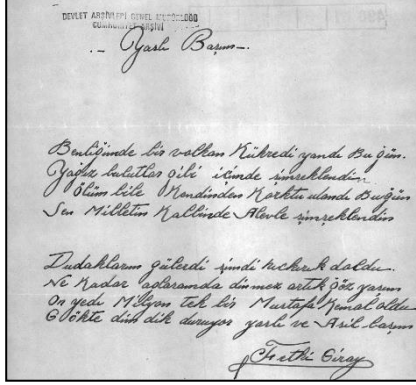 DEVLET ARŞİVLERİ GENEL MÜDÜRLÜĞÜ
CUMHURİYET ARŞİVİ
.- Yaslı Başım -.
Benliğimde bir volkan Kükredi yandı Bu gün.
Yağız bulutlar gibi içimde şimşeklendin.
Ölüm bile Kendinden Korktu utandı Bugün
Sen Milletin Kalbinde Alevle şimşeklendin
Dudaklarım gülerdi şimdi hıçkırık doldu.
Ne Kadar ağlasamda dinmez artık göz yaşım
On yedi Milyon tek bir Mustafa Kemal oldu
Gökte dim dik duruyor yaslı ve Asil başım
Fethi Giray